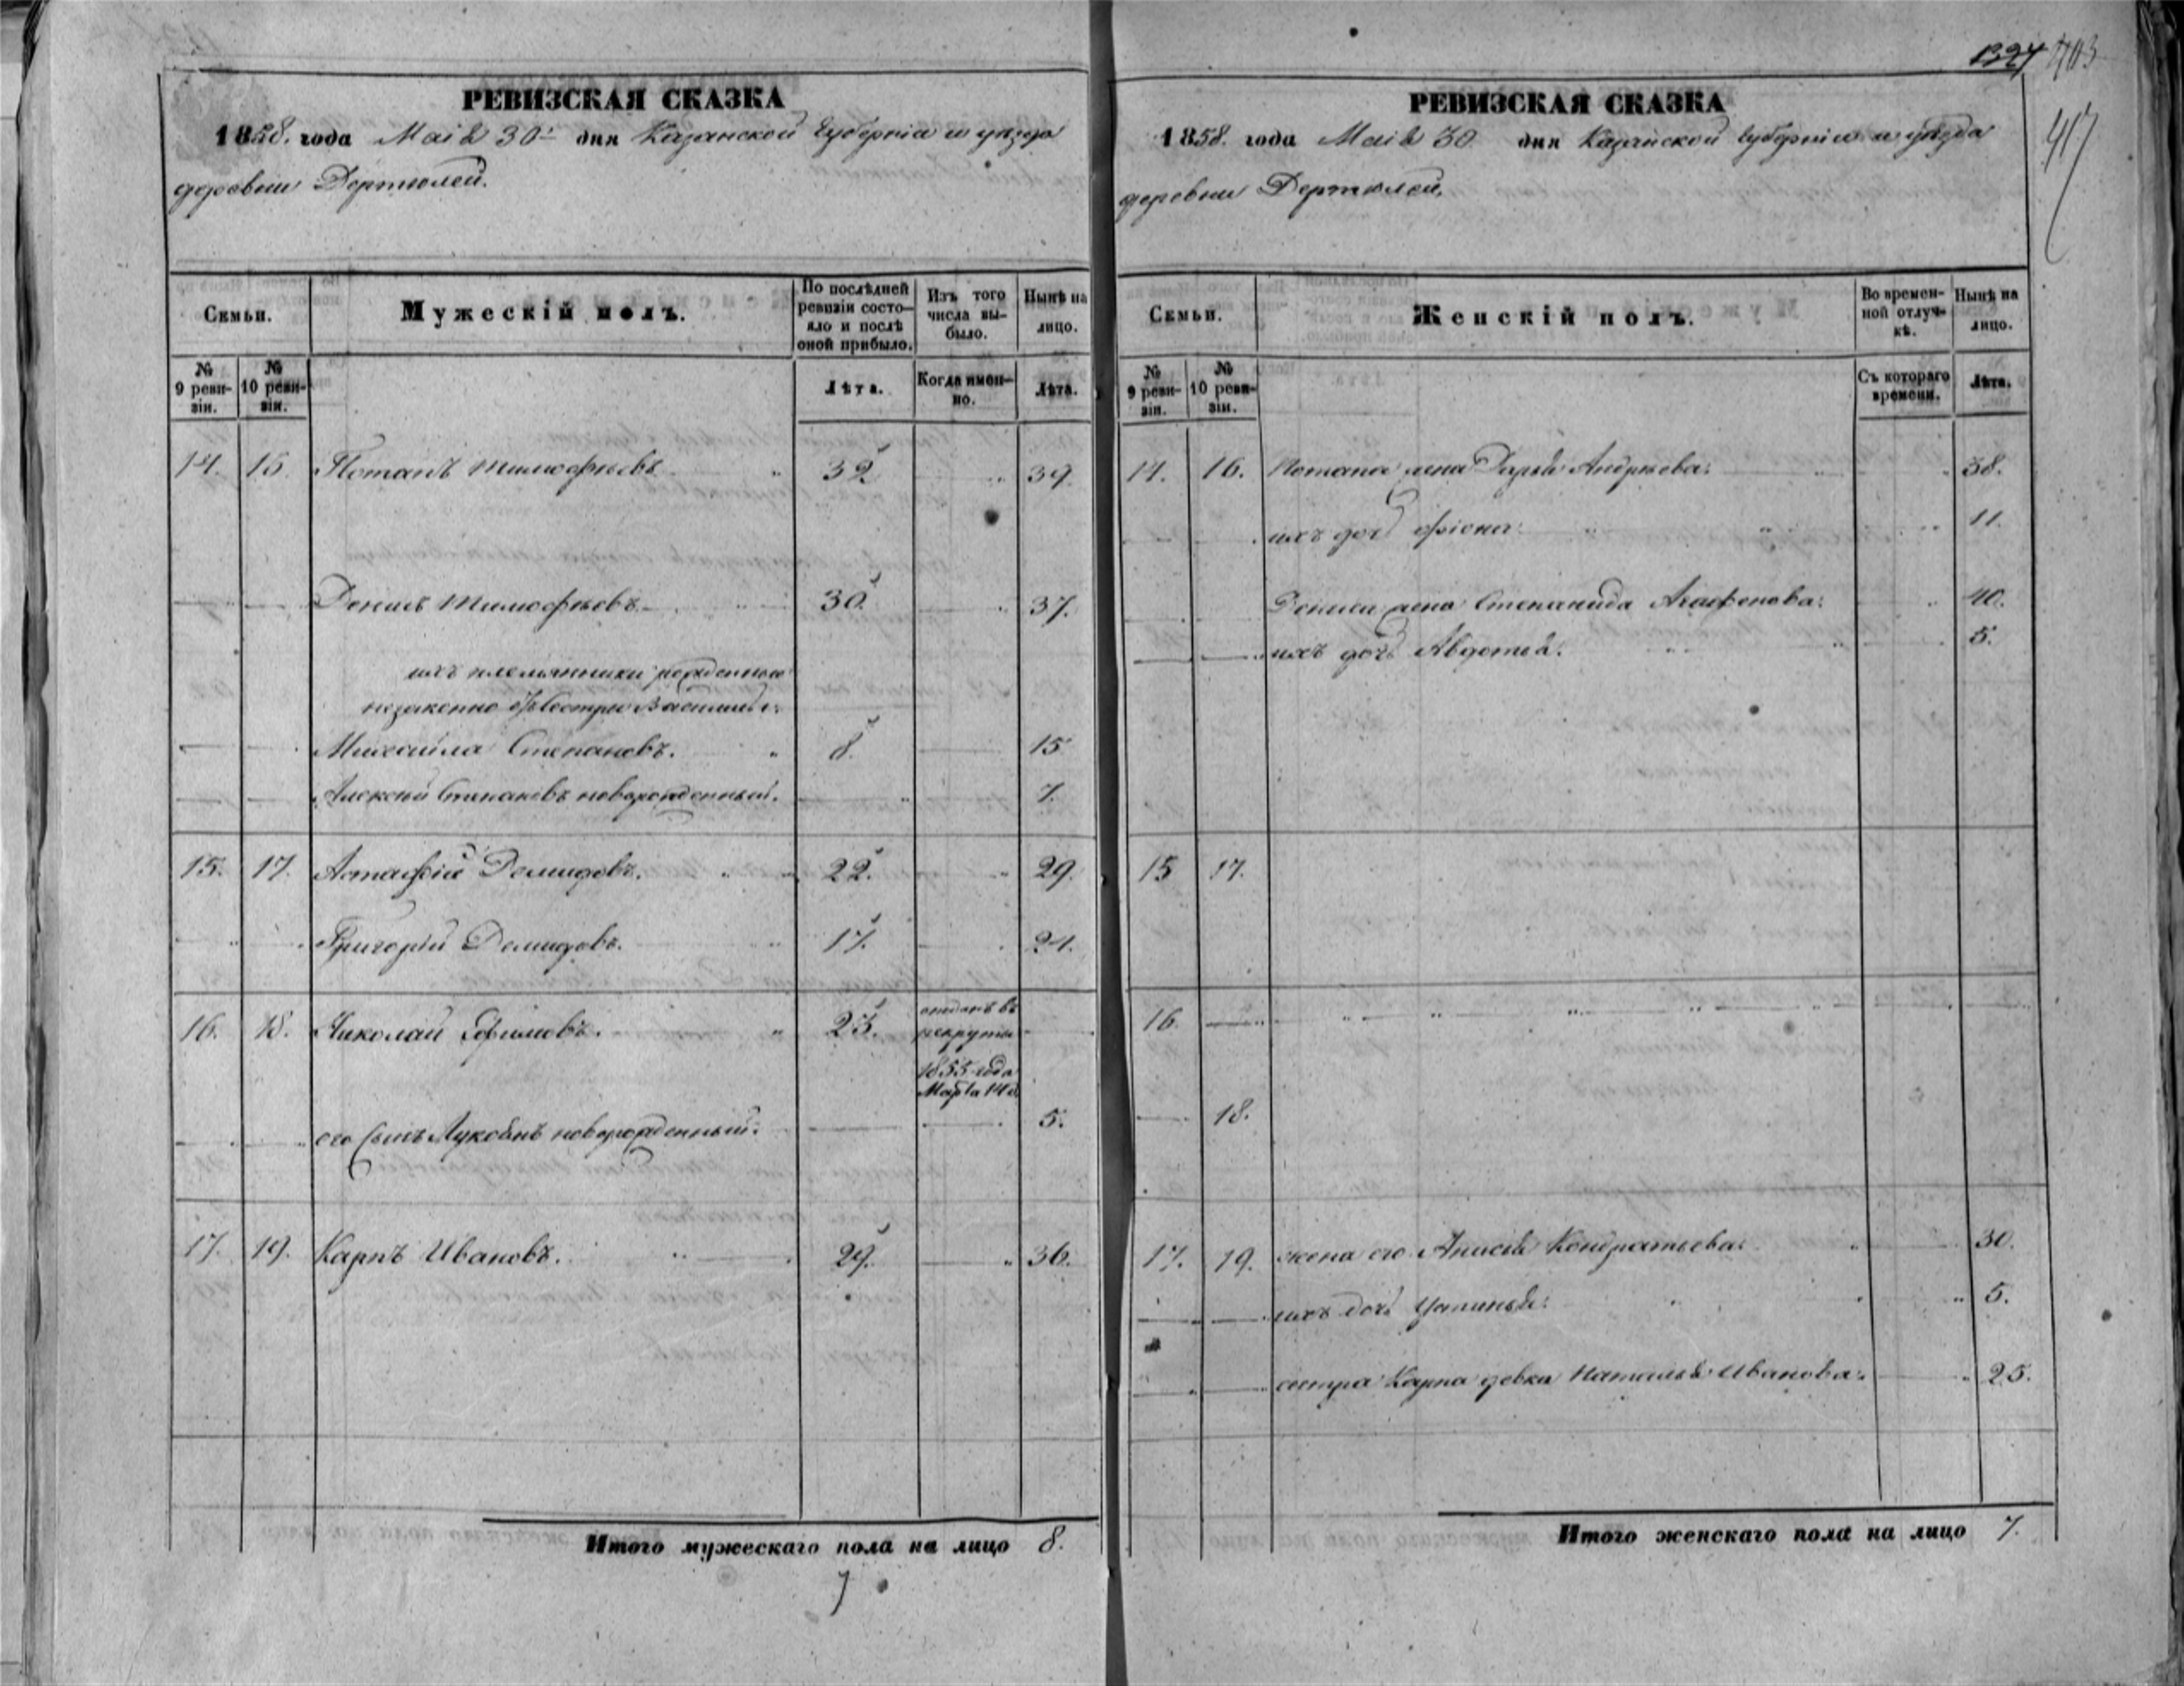 РЕВИЗСКАЯ СКАЗКА
1858. года Маія 30 дня Казанской Губерніи и уѣзда
деревни Дертюлей.
Семьи.
Мужескій полъ.
По послѣдней ревизіи состояло и послѣ оной прибыло.
Изъ того числа выбыло.
Нынѣ на лицо.
№ 9 ревизіи.
№ 10 ревизіи.
Лѣта.
Когда именно.
Лѣта.
14. 16. Потапъ Тимофѣевъ 32 39.
Денисъ Тимофѣевъ 30. 37.
ихъ племянники рожденные
незаконно отъ Сестры Василисы:
Михайла Степановъ. 8. 15
Алексѣй Степановъ новорожденный. 7.
15. 17. Астафій Демидовъ. 22. 29.
Григорій Демидовъ. 17. 24.
16. 18. Николай Ефимовъ. 23. отданъ въ
рекруты
1855 года
Марта 14 д.
его Сынъ Лукоянъ новорожденный. 5.
17. 19. Карпъ Ивановъ. 29. 36.
Итого мужескаго пола на лицо 8.
7
1324 703
417
РЕВИЗСКАЯ СКАЗКА
1858. года Маія 30 дня Казанской Губерніи и уѣзда
деревни Дертюлей.
Семьи.
Женскій полъ.
Во временной отлучкѣ.
Нынѣ на лицо.
№ 9 ревизіи.
№ 10 ревизіи.
Съ котораго времени.
Лѣта.
14. 16. Потапа жена Дарья Андреева: 38.
ихъ дочь Фіона: 11.
Дениса жена Степанида Агафонова: 40.
ихъ дочь Авдотья. 5.
15 17.
16.
18.
17. 19. жена его Анисья Кондратьева: 30.
ихъ дочь Устинья: 5.
сестра Карпа девка Наталья Иванова: 25.
Итого женскаго пола на лицо 7.